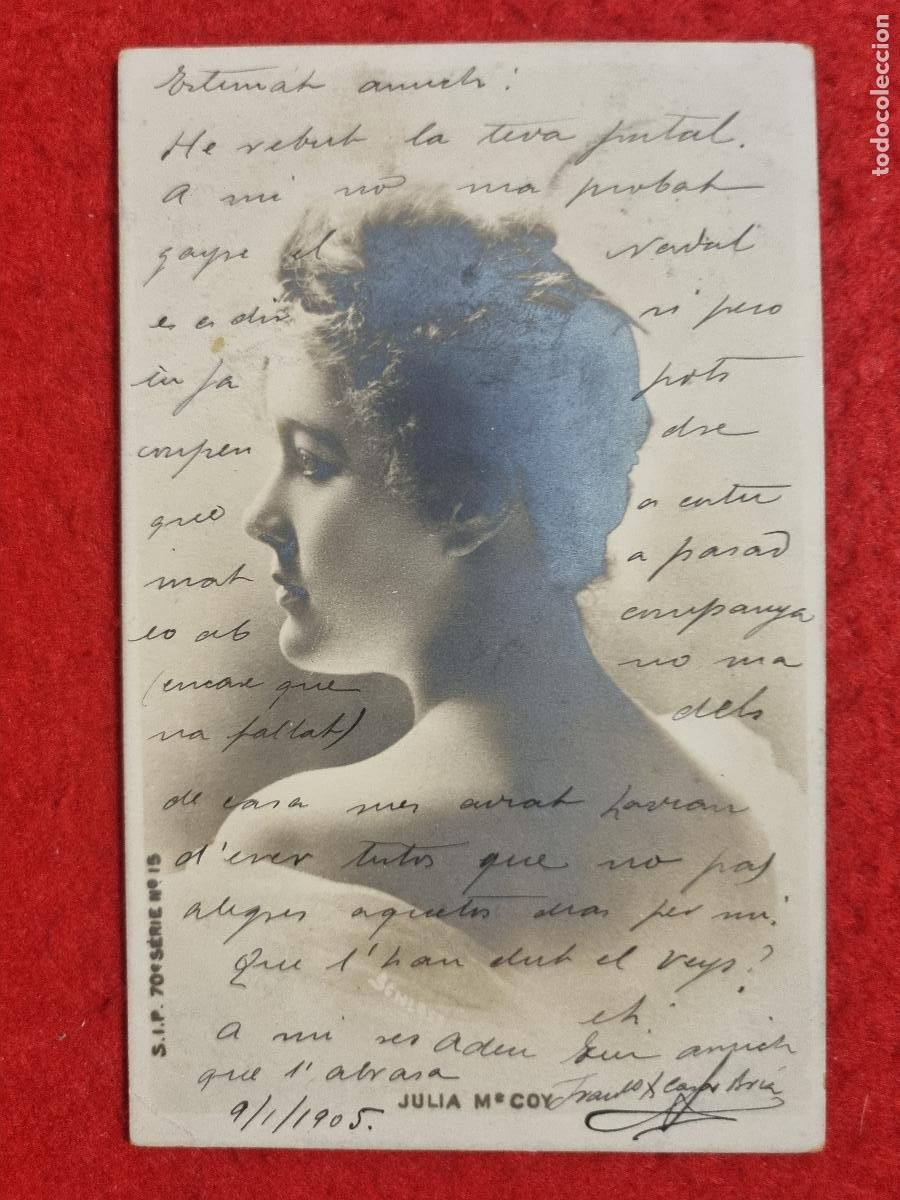 Estimat amich:
He rebut la teva postal.
A mi no ma probat
gayre el Nadal
es a dir si pero
ja pots
compen dre
que a estu
mat a pasad
eo ab companya
(encare que no ma
na faltat) dels
de casa mes aviat havian
d'esser tristos que no pas
alegres aquestos dias per mi.
Que t'han dut el reys?
eh.
A mi res Adeu amich
que t'abrasa
9/1/1905.
JULIA Mc COY
S.I.P. 70e SÉRIE No 15
todocoleccion